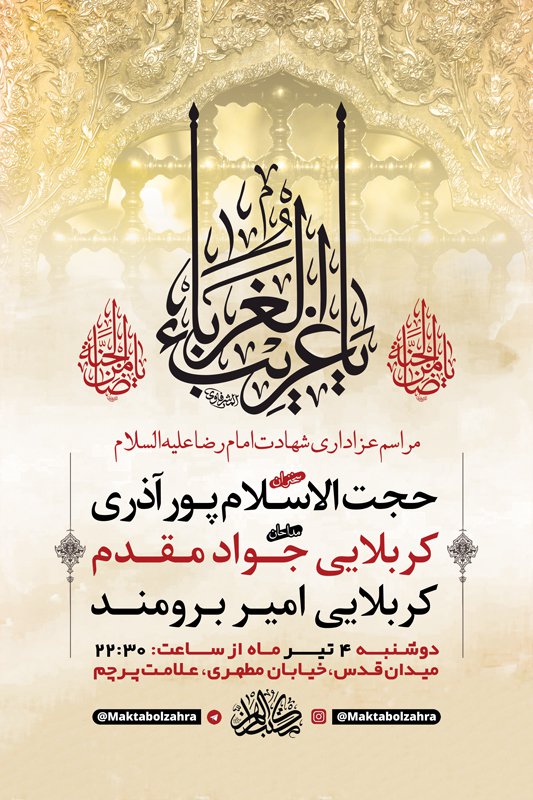 یا غریب الغرباء
یا ضامن الجنة
یا ضامن الجنة
مراسم عزاداری شهادت امام رضا علیه السلام
سخنران
حجت الاسلام پور آذری
مداحان
کربلایی جواد مقدم
کربلایی امیر برومند
دوشنبه ۴ تیر ماه از ساعت: ۲۲:۳۰
میدان قدس، خیابان مطهری، علامت پرچم
@Maktabolzahra
مکتب الزهرا
@Maktabolzahra